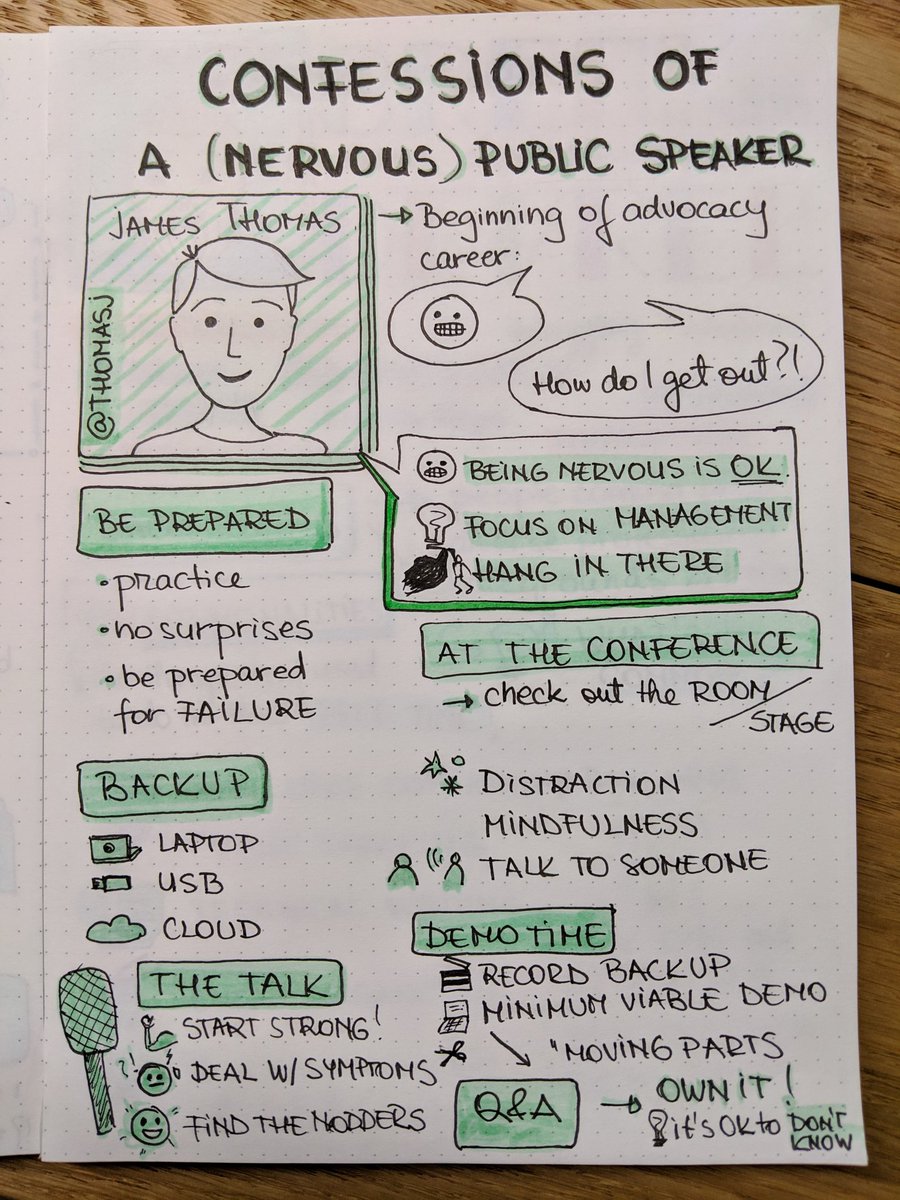 CONFESSIONS OF
A (NERVOUS) PUBLIC SPEAKER
JAMES THOMAS
@THOMASJ
→ Beginning of advocacy
career:
How do I get out?!
BEING NERVOUS IS OK
FOCUS ON MANAGEMENT
HANG IN THERE
BE PREPARED
• practice
• no surprises
• be prepared
for FAILURE
AT THE CONFERENCE
→ check out the ROOM/
STAGE
BACKUP
LAPTOP
USB
CLOUD
DISTRACTION
MINDFULNESS
TALK TO SOMEONE
THE TALK
START STRONG!
DEAL W/ SYMPTOMS
FIND THE NODDERS
DEMO TIME
RECORD BACKUP
MINIMUM VIABLE DEMO
↘ "MOVING PARTS
Q&A → OWN IT!
it's OK to DON'T
KNOW